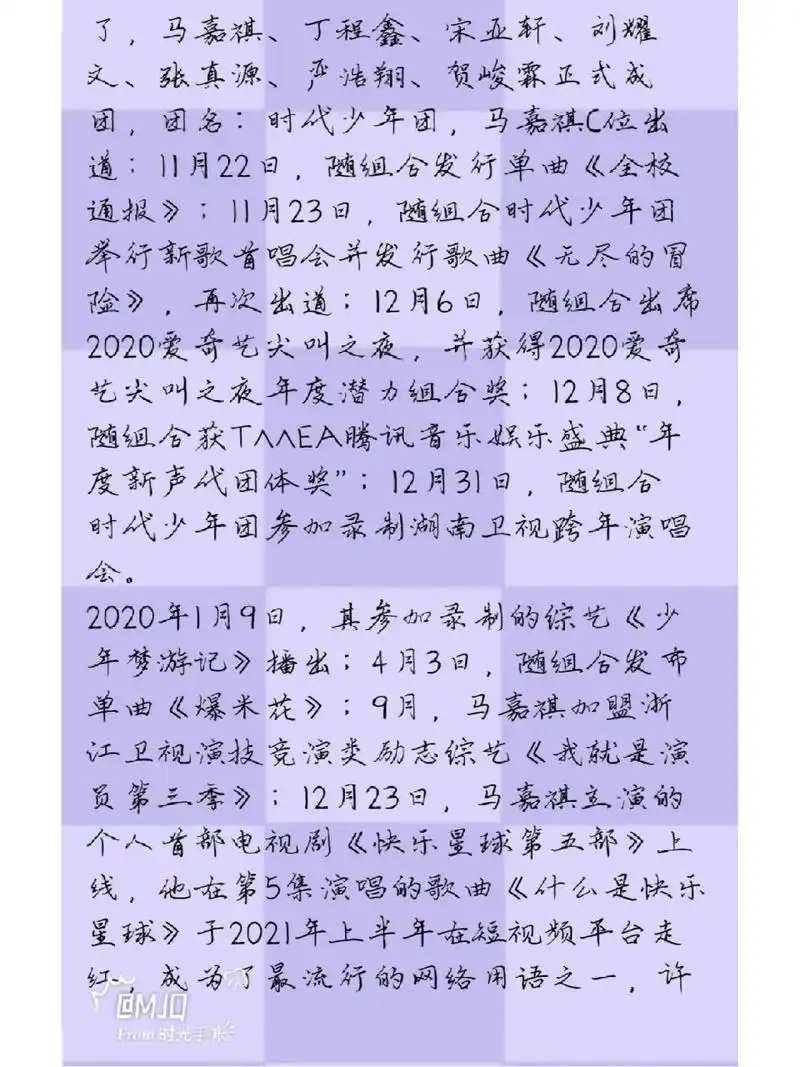 了，马嘉祺、丁程鑫、宋亚轩、刘耀
文、张真源、严浩翔、贺峻霖正式成
团，团名：时代少年团，马嘉祺C位出
道；11月22日，随组合发行单曲《全校
通报》；11月23日，随组合时代少年团
举行新歌首唱会并发行歌曲《无尽的冒
险》，再次出道；12月6日，随组合出席
2020爱奇艺尖叫之夜，并获得2020爱奇
艺尖叫之夜年度潜力组合奖；12月8日，
随组合获TMEA腾讯音乐娱乐盛典“年
度新声代团体奖”；12月31日，随组合
时代少年团参加录制湖南卫视跨年演唱
会。
2020年1月9日，其参加录制的综艺《少
年梦游记》播出；4月3日，随组合发布
单曲《爆米花》；9月，马嘉祺加盟浙
江卫视演技竞演类励志综艺《我就是演
员第三季》；12月23日，马嘉祺主演的
个人首部电视剧《快乐星球第五部》上
线，他在第5集演唱的歌曲《什么是快乐
星球》于2021年上半年在短视频平台走
红，成为了最流行的网络用语之一，许
@MJQ
From 时光手帐